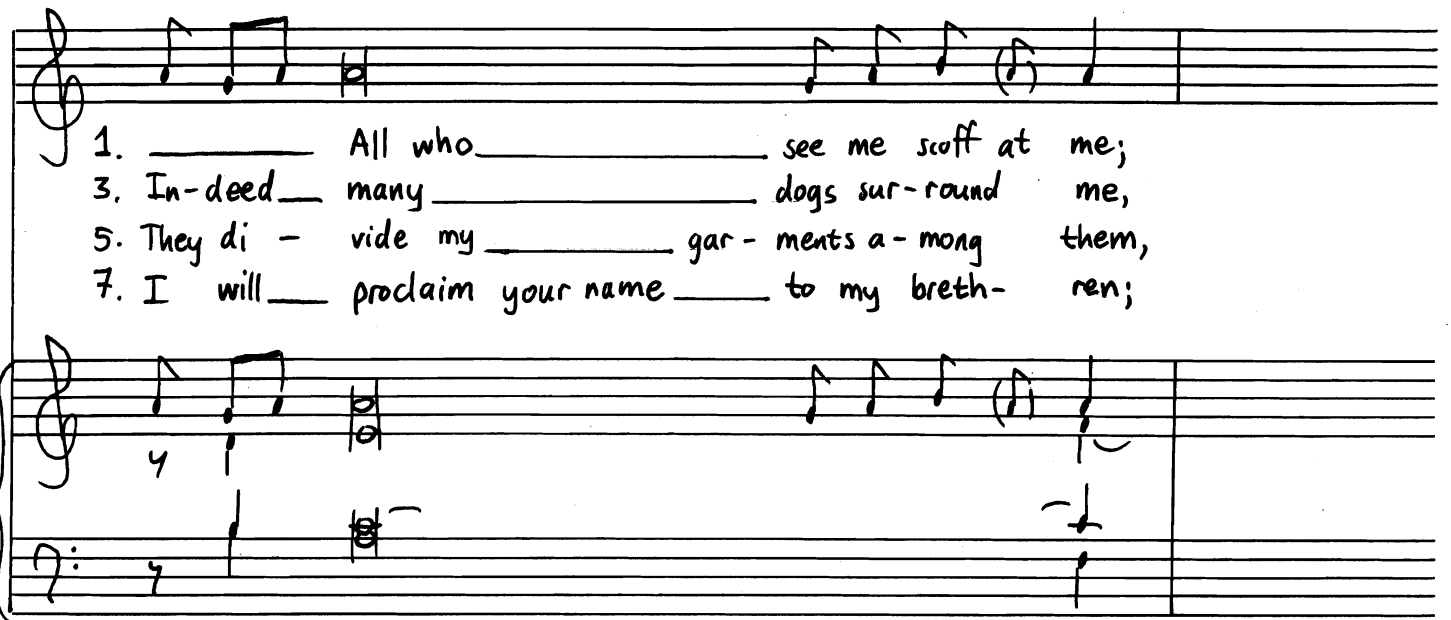 1. ________ All who ______________ see me scoff at me;
3. In-deed__ many ________________ dogs sur-round me,
5. They di - vide my _________ gar - ments a - mong them,
7. I will___ proclaim your name_____ to my breth- ren;